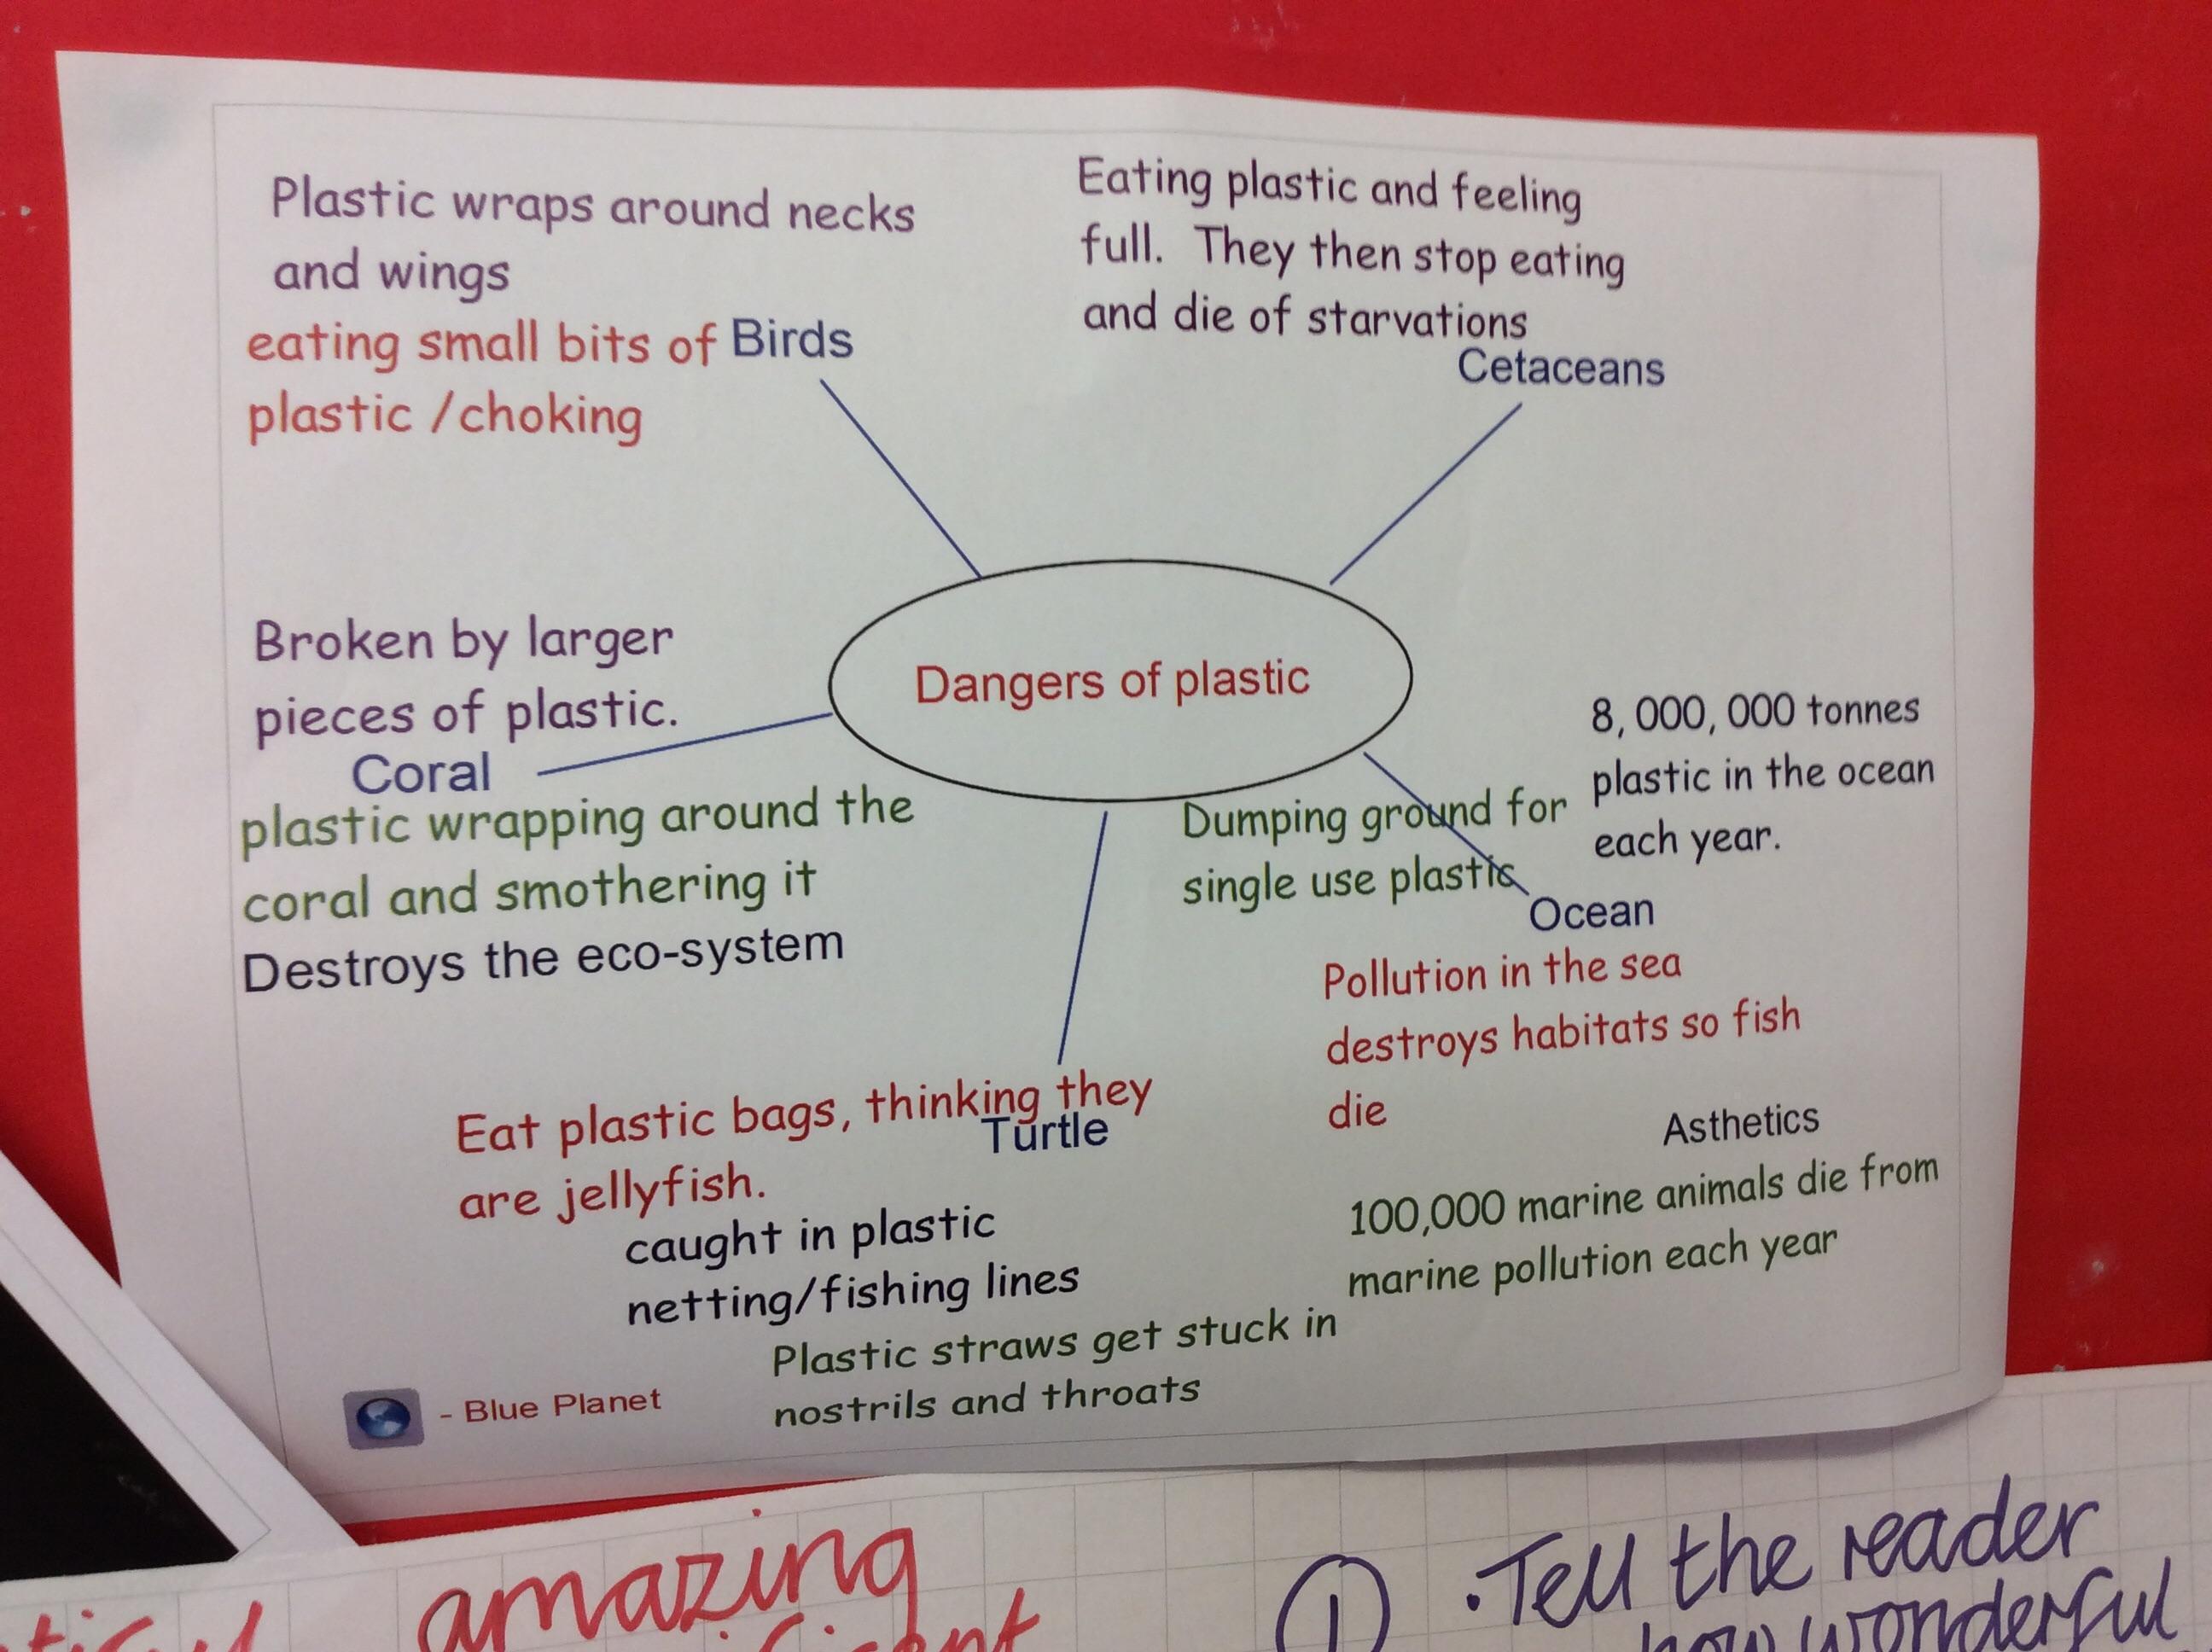 Plastic wraps around necks
and wings
eating small bits of Birds
plastic /choking
Eating plastic and feeling
full. They then stop eating
and die of starvations
Cetaceans
Dangers of plastic
Broken by larger
pieces of plastic.
Coral
plastic wrapping around the
coral and smothering it
Destroys the eco-system
8,000,000 tonnes
plastic in the ocean
each year.
Dumping ground for
single use plastic
Ocean
Pollution in the sea
destroys habitats so fish
die
Asthetics
100,000 marine animals die from
marine pollution each year
Eat plastic bags, thinking they
Turtle
are jellyfish.
caught in plastic
netting/fishing lines
Plastic straws get stuck in
nostrils and throats
- Blue Planet
amazing
1 . Tell the reader
how wonderful